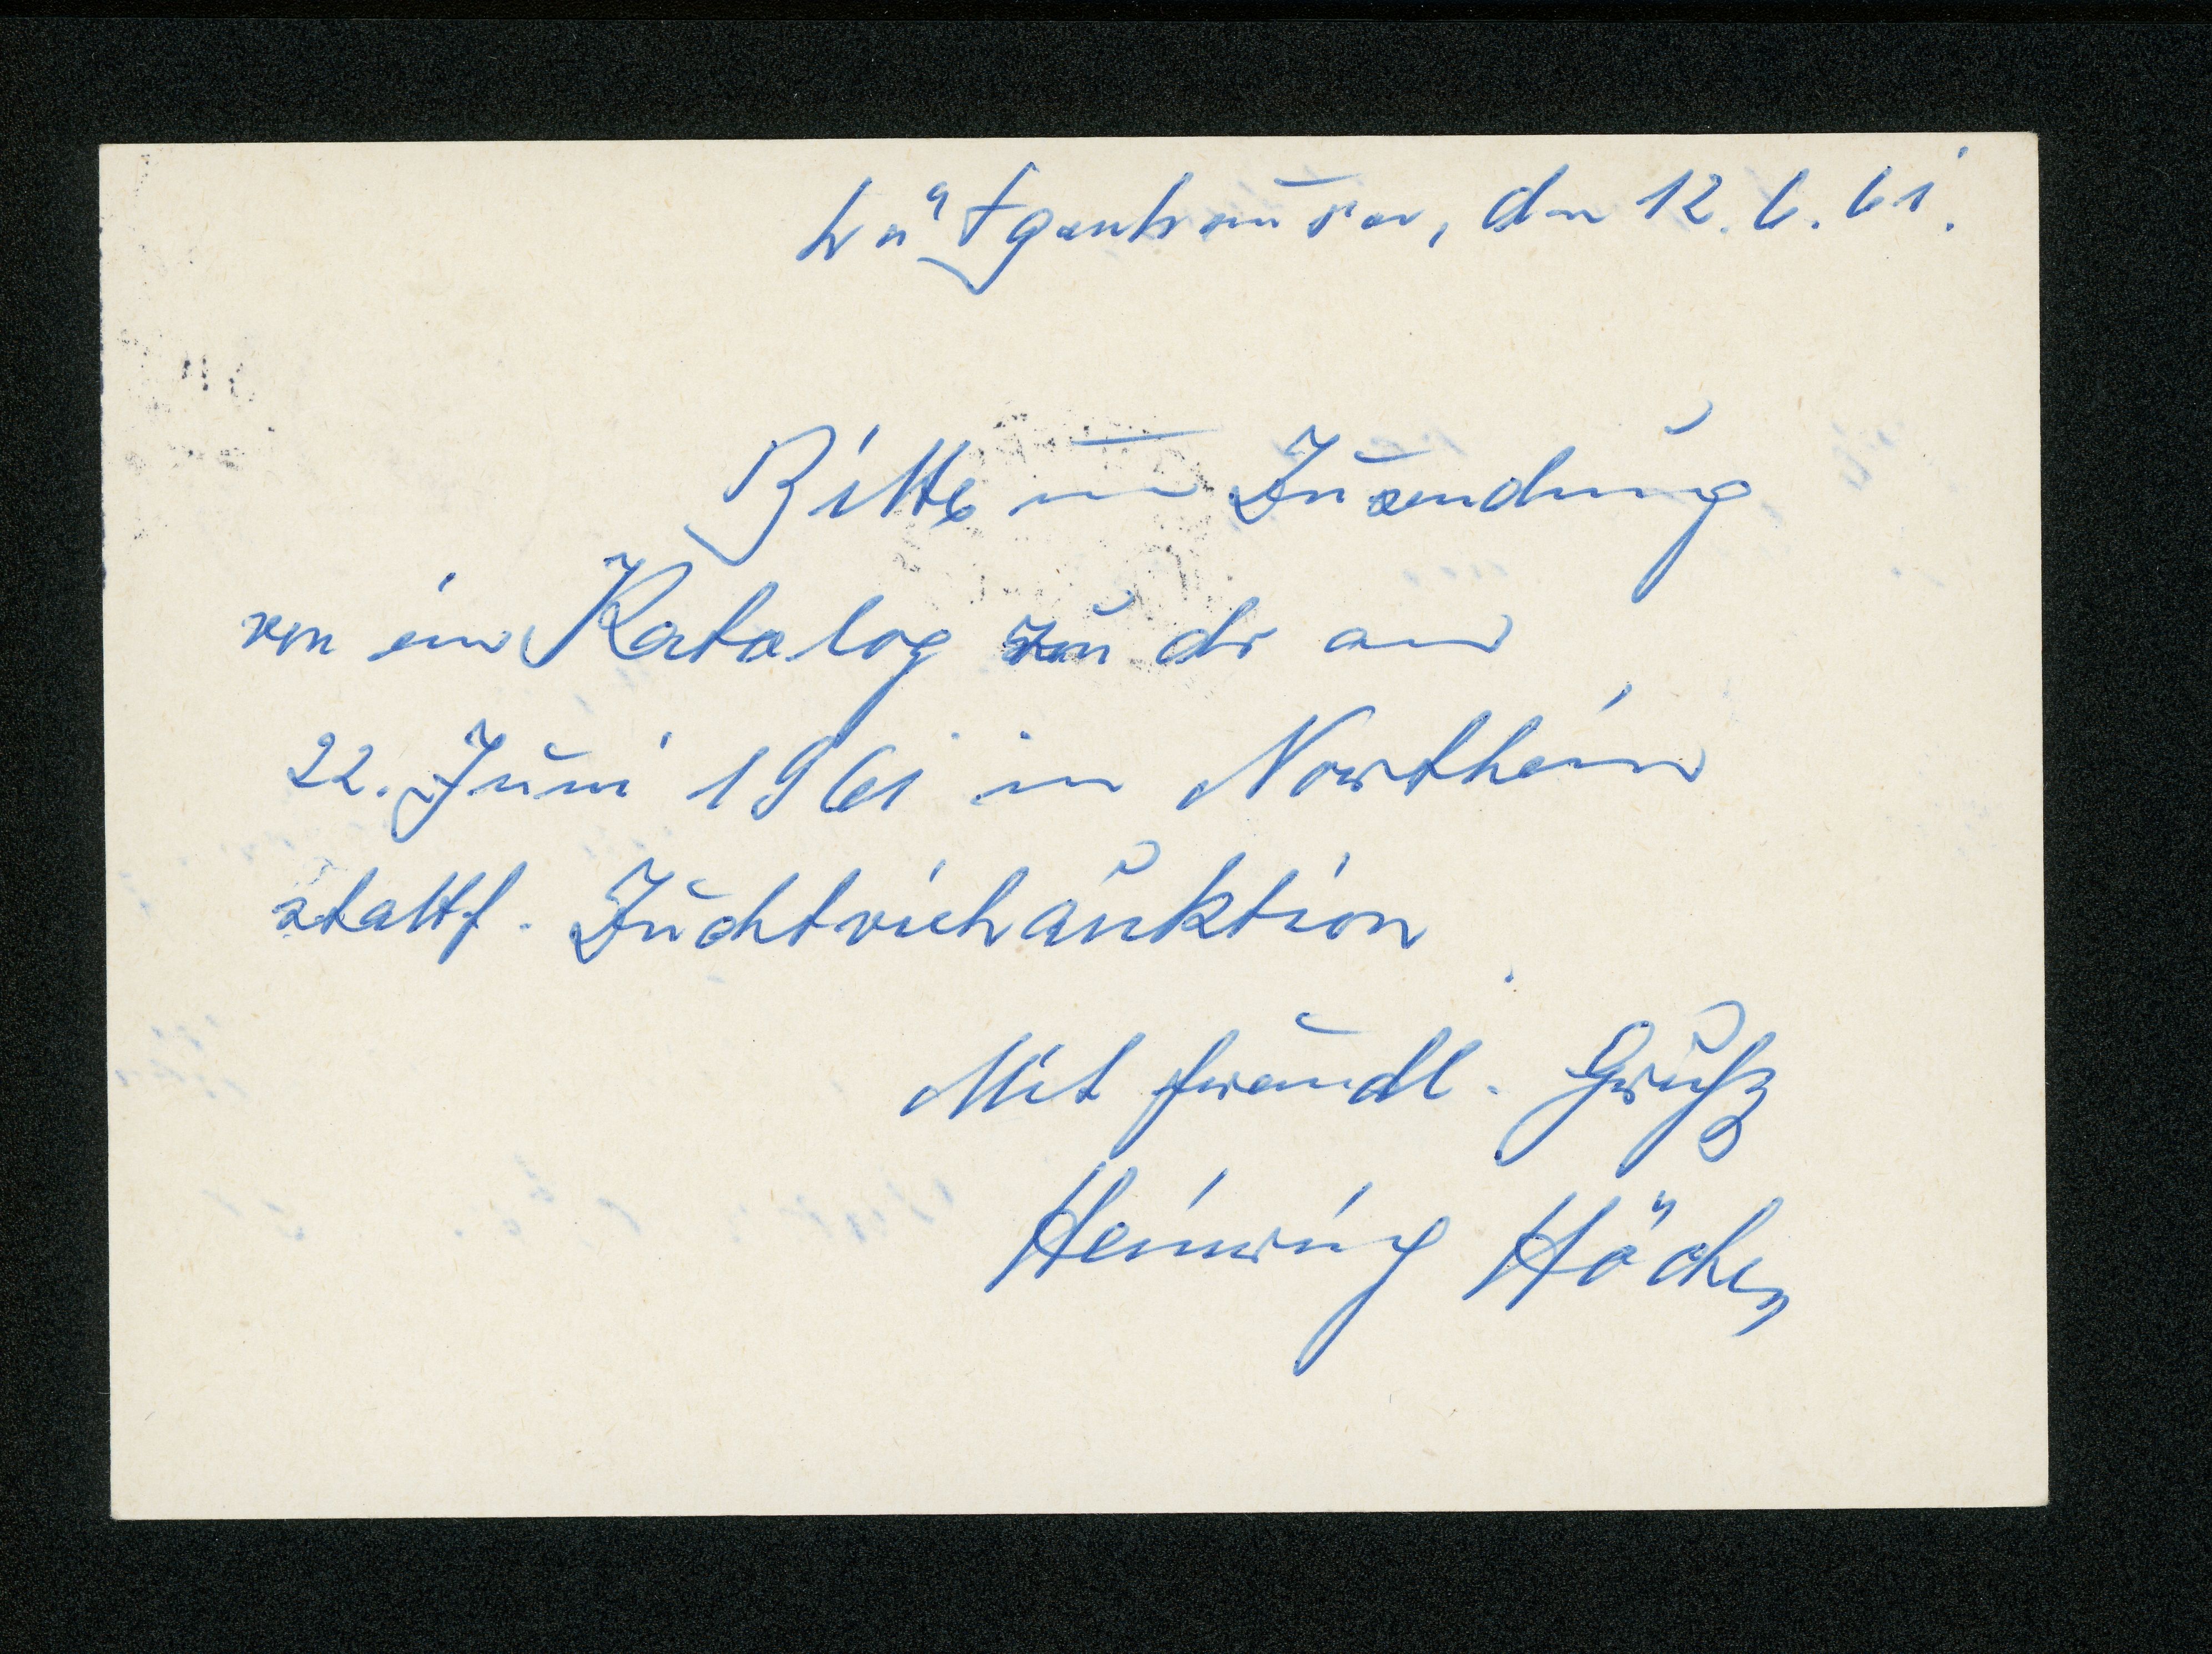 Lütgenhausen, den 12.6.61.
Bitte um Zusendung
von ein Katalog zu dr am
22. Juni 1961 in Northeim
stattf. Zuchtviehauktion
Mit freundl. Gruß
Henning